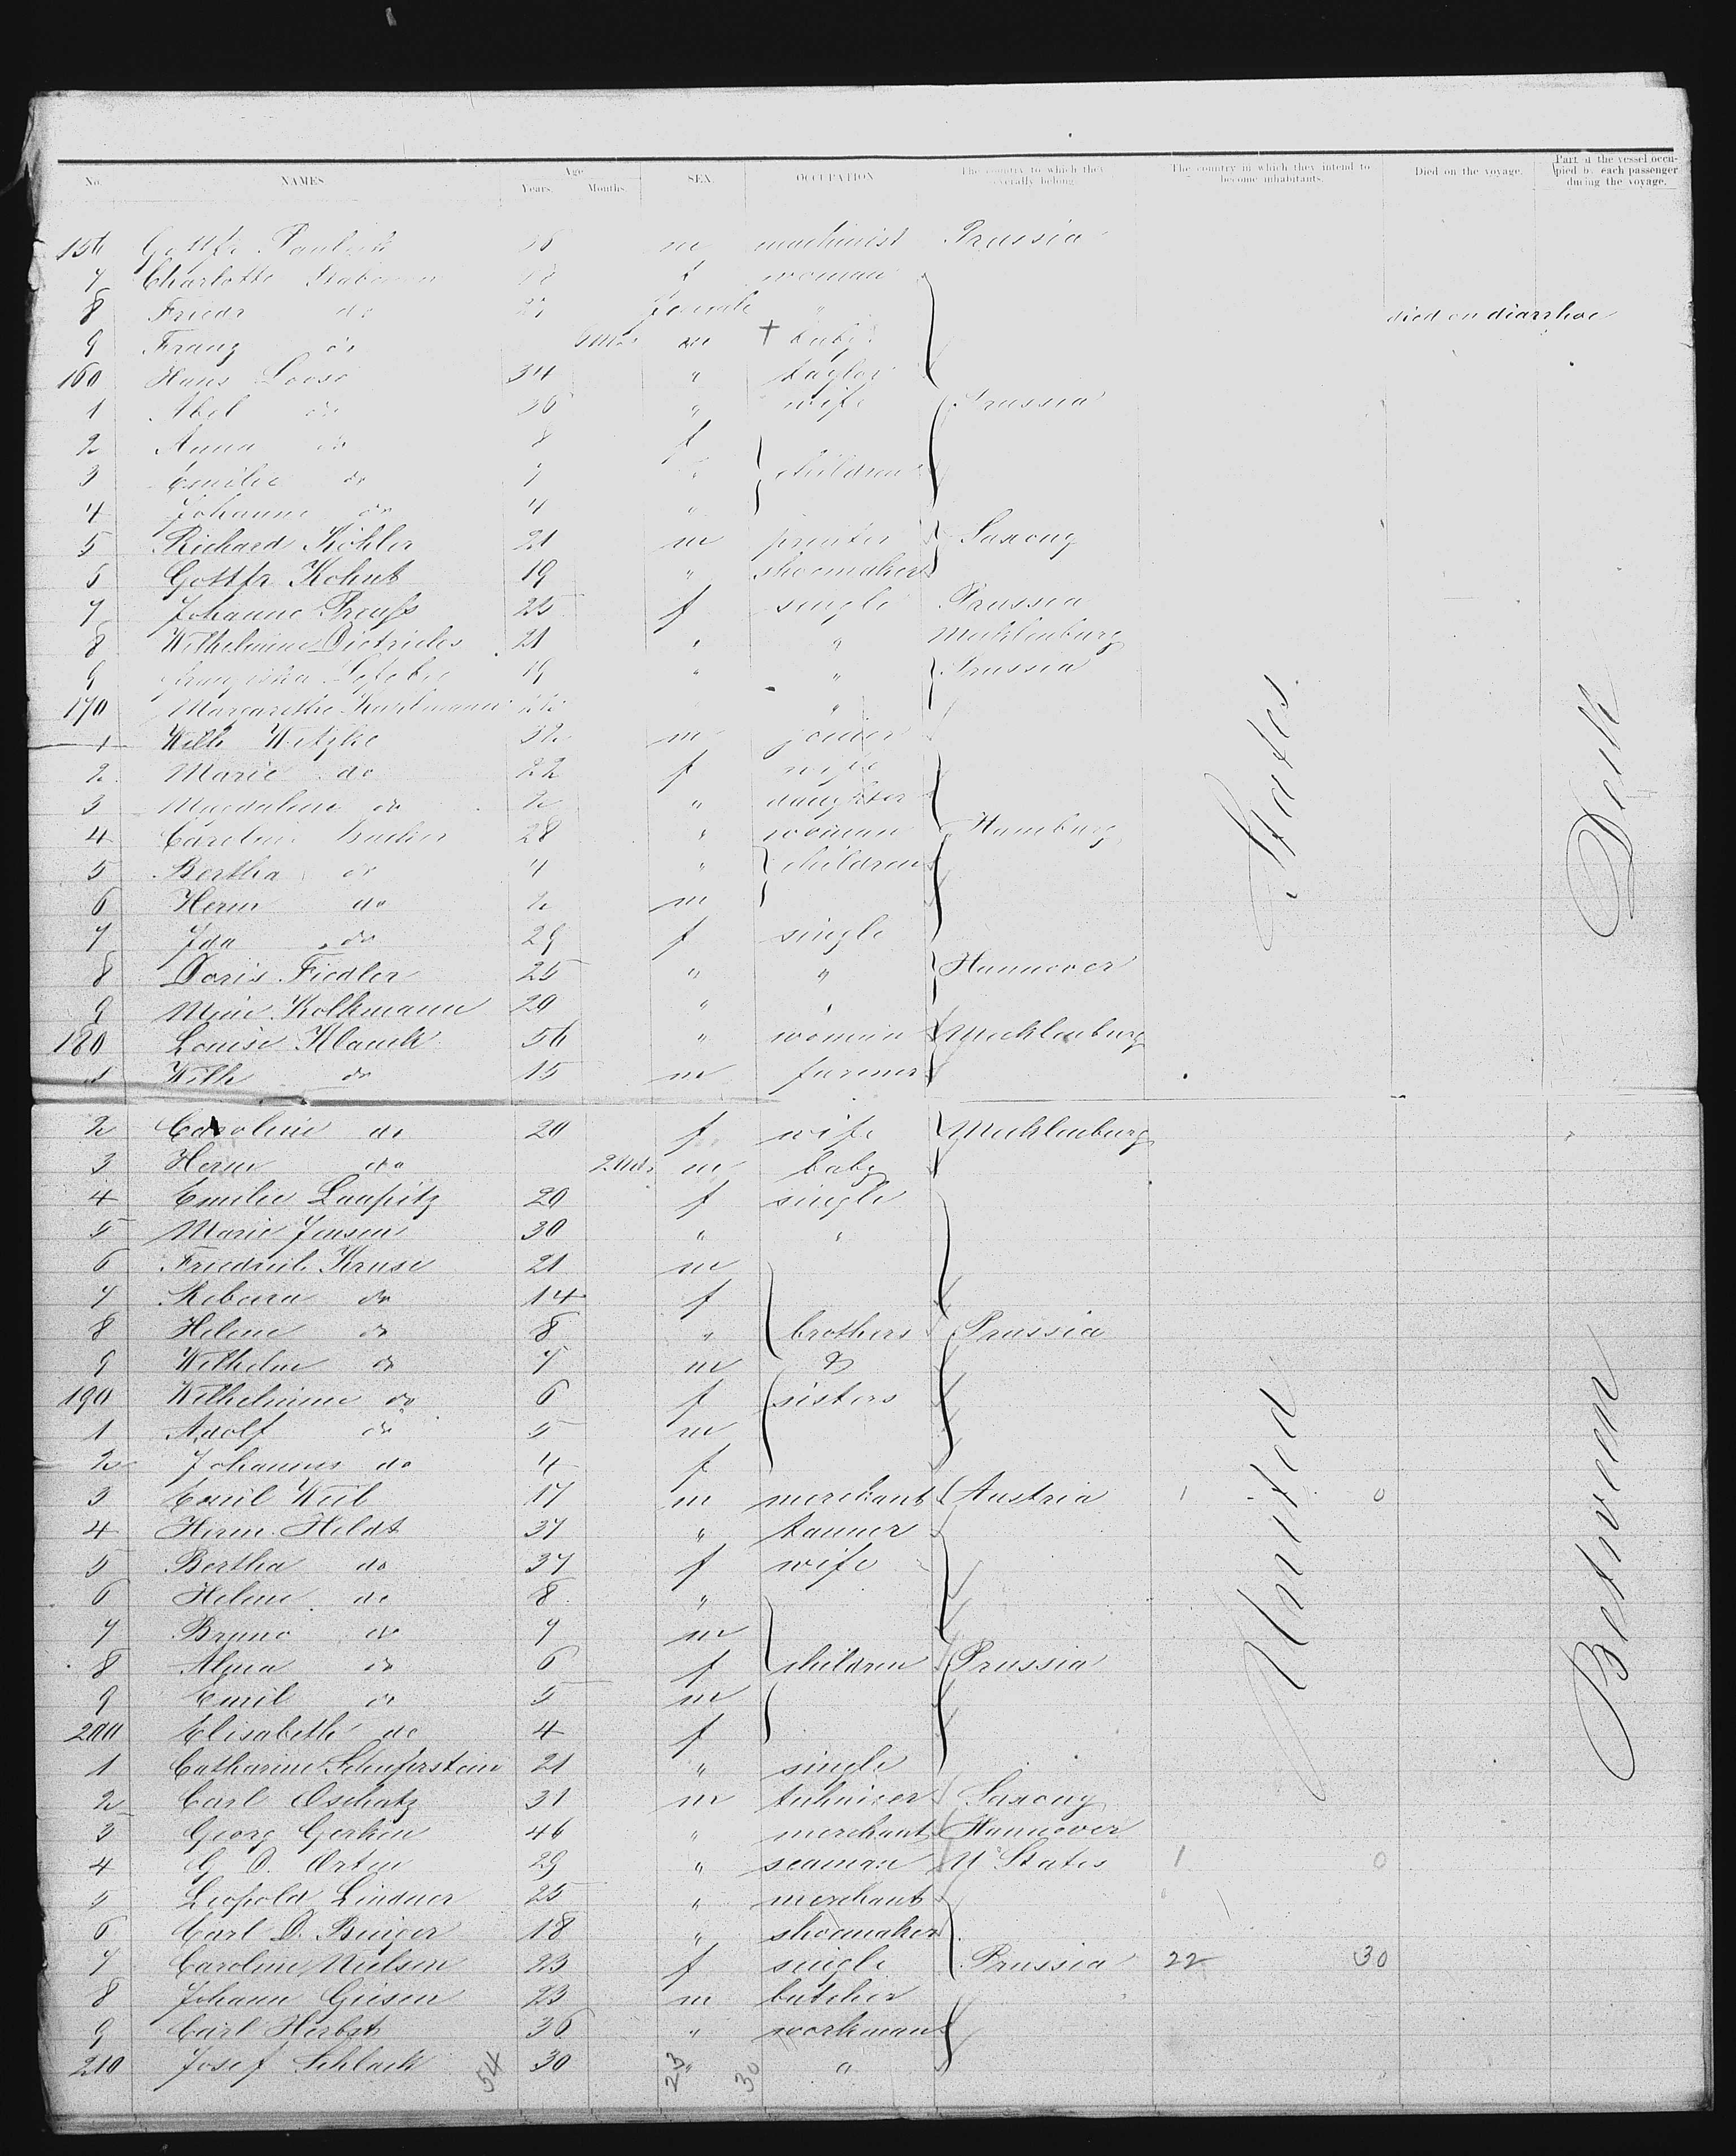 No. NAMES Age Years. Months. SEX. OCCUPATION The country to which they severally belong. The country in which they intend to become inhabitants. Died on the voyage. Part of the vessel occupied by each passenger during the voyage.
156 m machinist Prussia
7 Charlotte f woman
8 Friedr do female " died on diarrhoe
9 Franz do m + baby
160 Hans Loose 34 " taylor
1 Abel do 36 " wife Prussia
2 Anna do 8 f
3 Emilie do 7 " children
4 Johanne do 4 "
5 Richard Köhler 21 m printer Saxony
6 Gottfr. Kohut 19 " shoemaker
7 Johanne Preuß 25 f single Prussia
8 Wilhelmine Dietrichs 21 " " Mecklenburg
9 19 " " Prussia
170 Margarethe "
1 Wilh Witzke 32 m joiner
2 Marie do 22 f wife
3 Magdalene do 2 " daughter
4 Caroline 28 " woman Hamburg
5 Bertha do 4 " children
6 Herm do 2 m
7 Ida do 29 f single
8 Doris Fiedler 25 " " Hannover
9 Mine Kolkmann 29 " "
180 Louise Klauck 56 " woman Mecklenburg
1 Wilh do 15 m farmer
2 Caroline do 20 f wife Mecklenburg
3 Herm do 2 Mo. m baby
4 Emilie 20 f single
5 Marie Jensen 30 " "
6 Kruse 21 m
7 do 14 f
8 Helene do 8 " brothers Prussia
9 Wilhelm do 7 m &
190 Wilhelmine do 6 f sisters
1 Adolf do 5 m
2 Johannes do 4 f
3 Emil Weil 17 m merchant Austria 1 0
4 Herm. Heldt 37 " tanner
5 Bertha do 37 f wife
6 Helene do 8 "
7 Bruno do 7 m
8 do 6 f children Prussia
9 Emil do 5 m
200 Elisabeth do 4 f
1 Catharine 21 " single
2 Carl Oschatz 31 m Saxony
3 Georg Gerken 46 " merchant Hannover
4 G. D. Orten 29 " seaman U States 1 0
5 Leopold Lindner 25 " merchant
6 Carl D. 18 " shoemaker
7 Caroline Nielsen 23 f single Prussia 22 30
8 Johann Giesen 23 m butcher
9 Carl Herbst 36 " workman
210 Josef Schlack 30 " "
54 23 30
United States
Between Deck